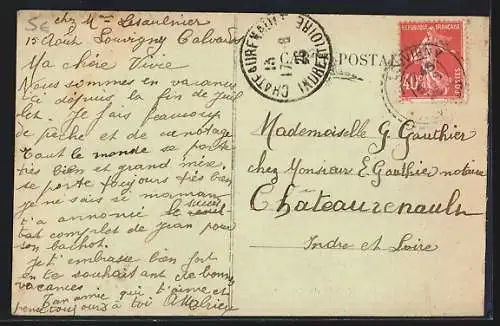 5e
chez Mme Lsaulnier
15 Août Louvigny Calvados
Ma chère Vivie
Nous sommes en vacances
ici depuis la fin de juil
let. Je fais beaucoup
de pêche et de canotage
Tout le monde se porte
très bien et grand mère
se porte toujours très bien
je ne sais si maman
t'a annoncé le succès
complet de Jean pour
son bachot.
Je t'embrasse bien fort
en te souhaitant de bonnes
vacances
Ton amie qui t'aime et
pense toujours à toi
CHATEAURENAULT
(INDRE ET LOIRE)
POSTA
REPUBLIQUE FRANÇAISE
40c
POSTES
Mademoiselle G. Gauthier
chez Monsieur E. Gauthier notaire
Châteaurenault
Indre et Loire